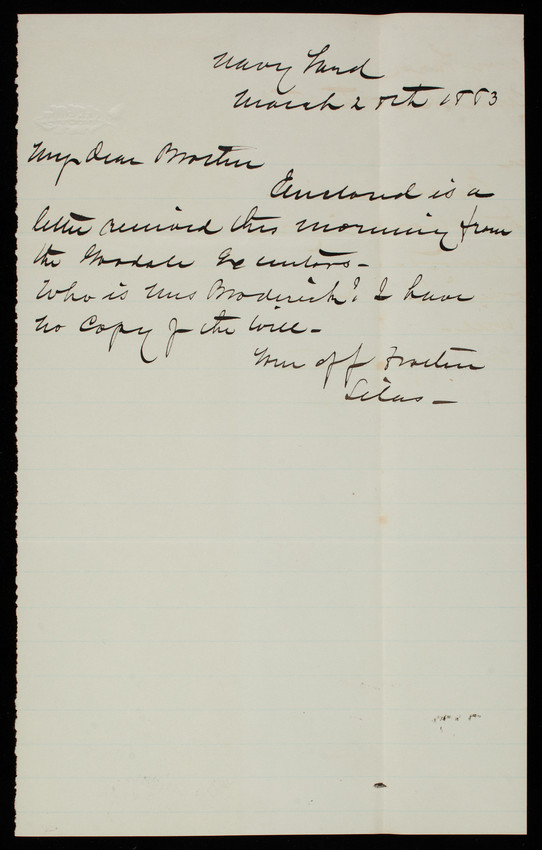 Navy Yard
March 28th 1883
My Dear Brother
Enclosed is a
letter received this morning from
the Goodale Executors -
Who is Mrs Broderick? I have
no copy of the Will -
Your aff Brother
Silas -